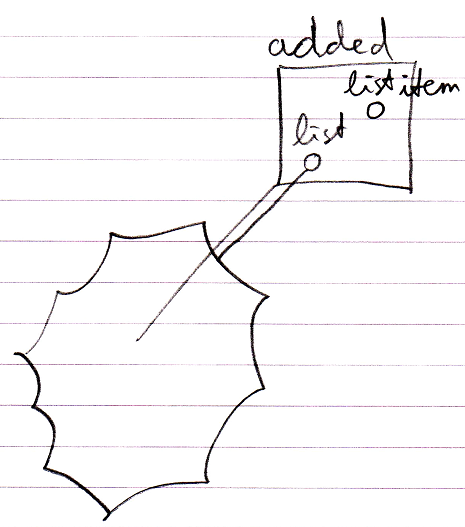 added
list item
list